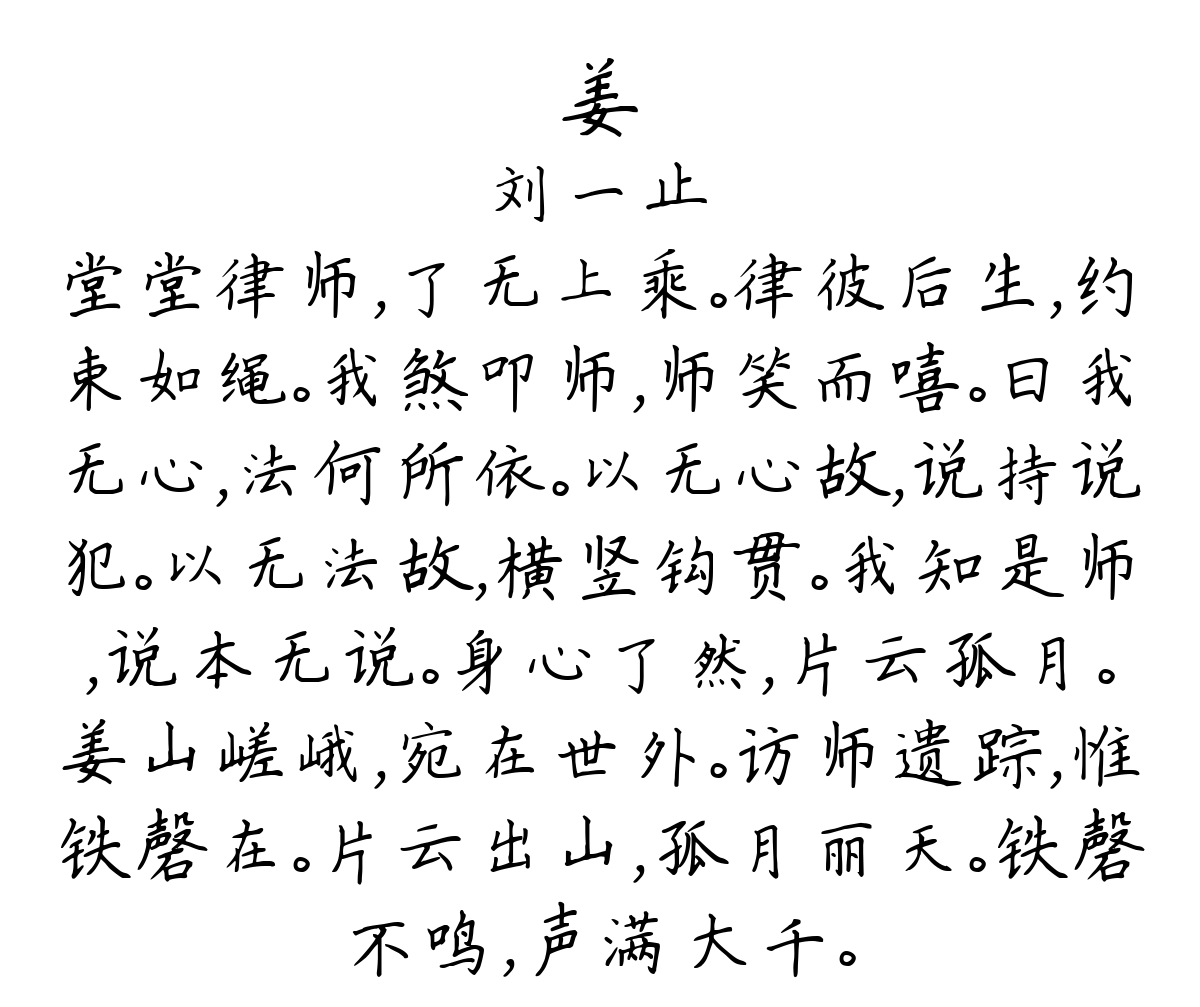 姜
刘一止
堂堂律师,了无上乘。律彼后生,约
束如绳。我煞叩师,师笑而嘻。曰我
无心,法何所依。以无心故,说持说
犯。以无法故,横竖钩贯。我知是师
,说本无说。身心了然,片云孤月。
姜山嵯峨,宛在世外。访师遗踪,惟
铁磬在。片云出山,孤月丽天。铁磬
不鸣,声满大千。